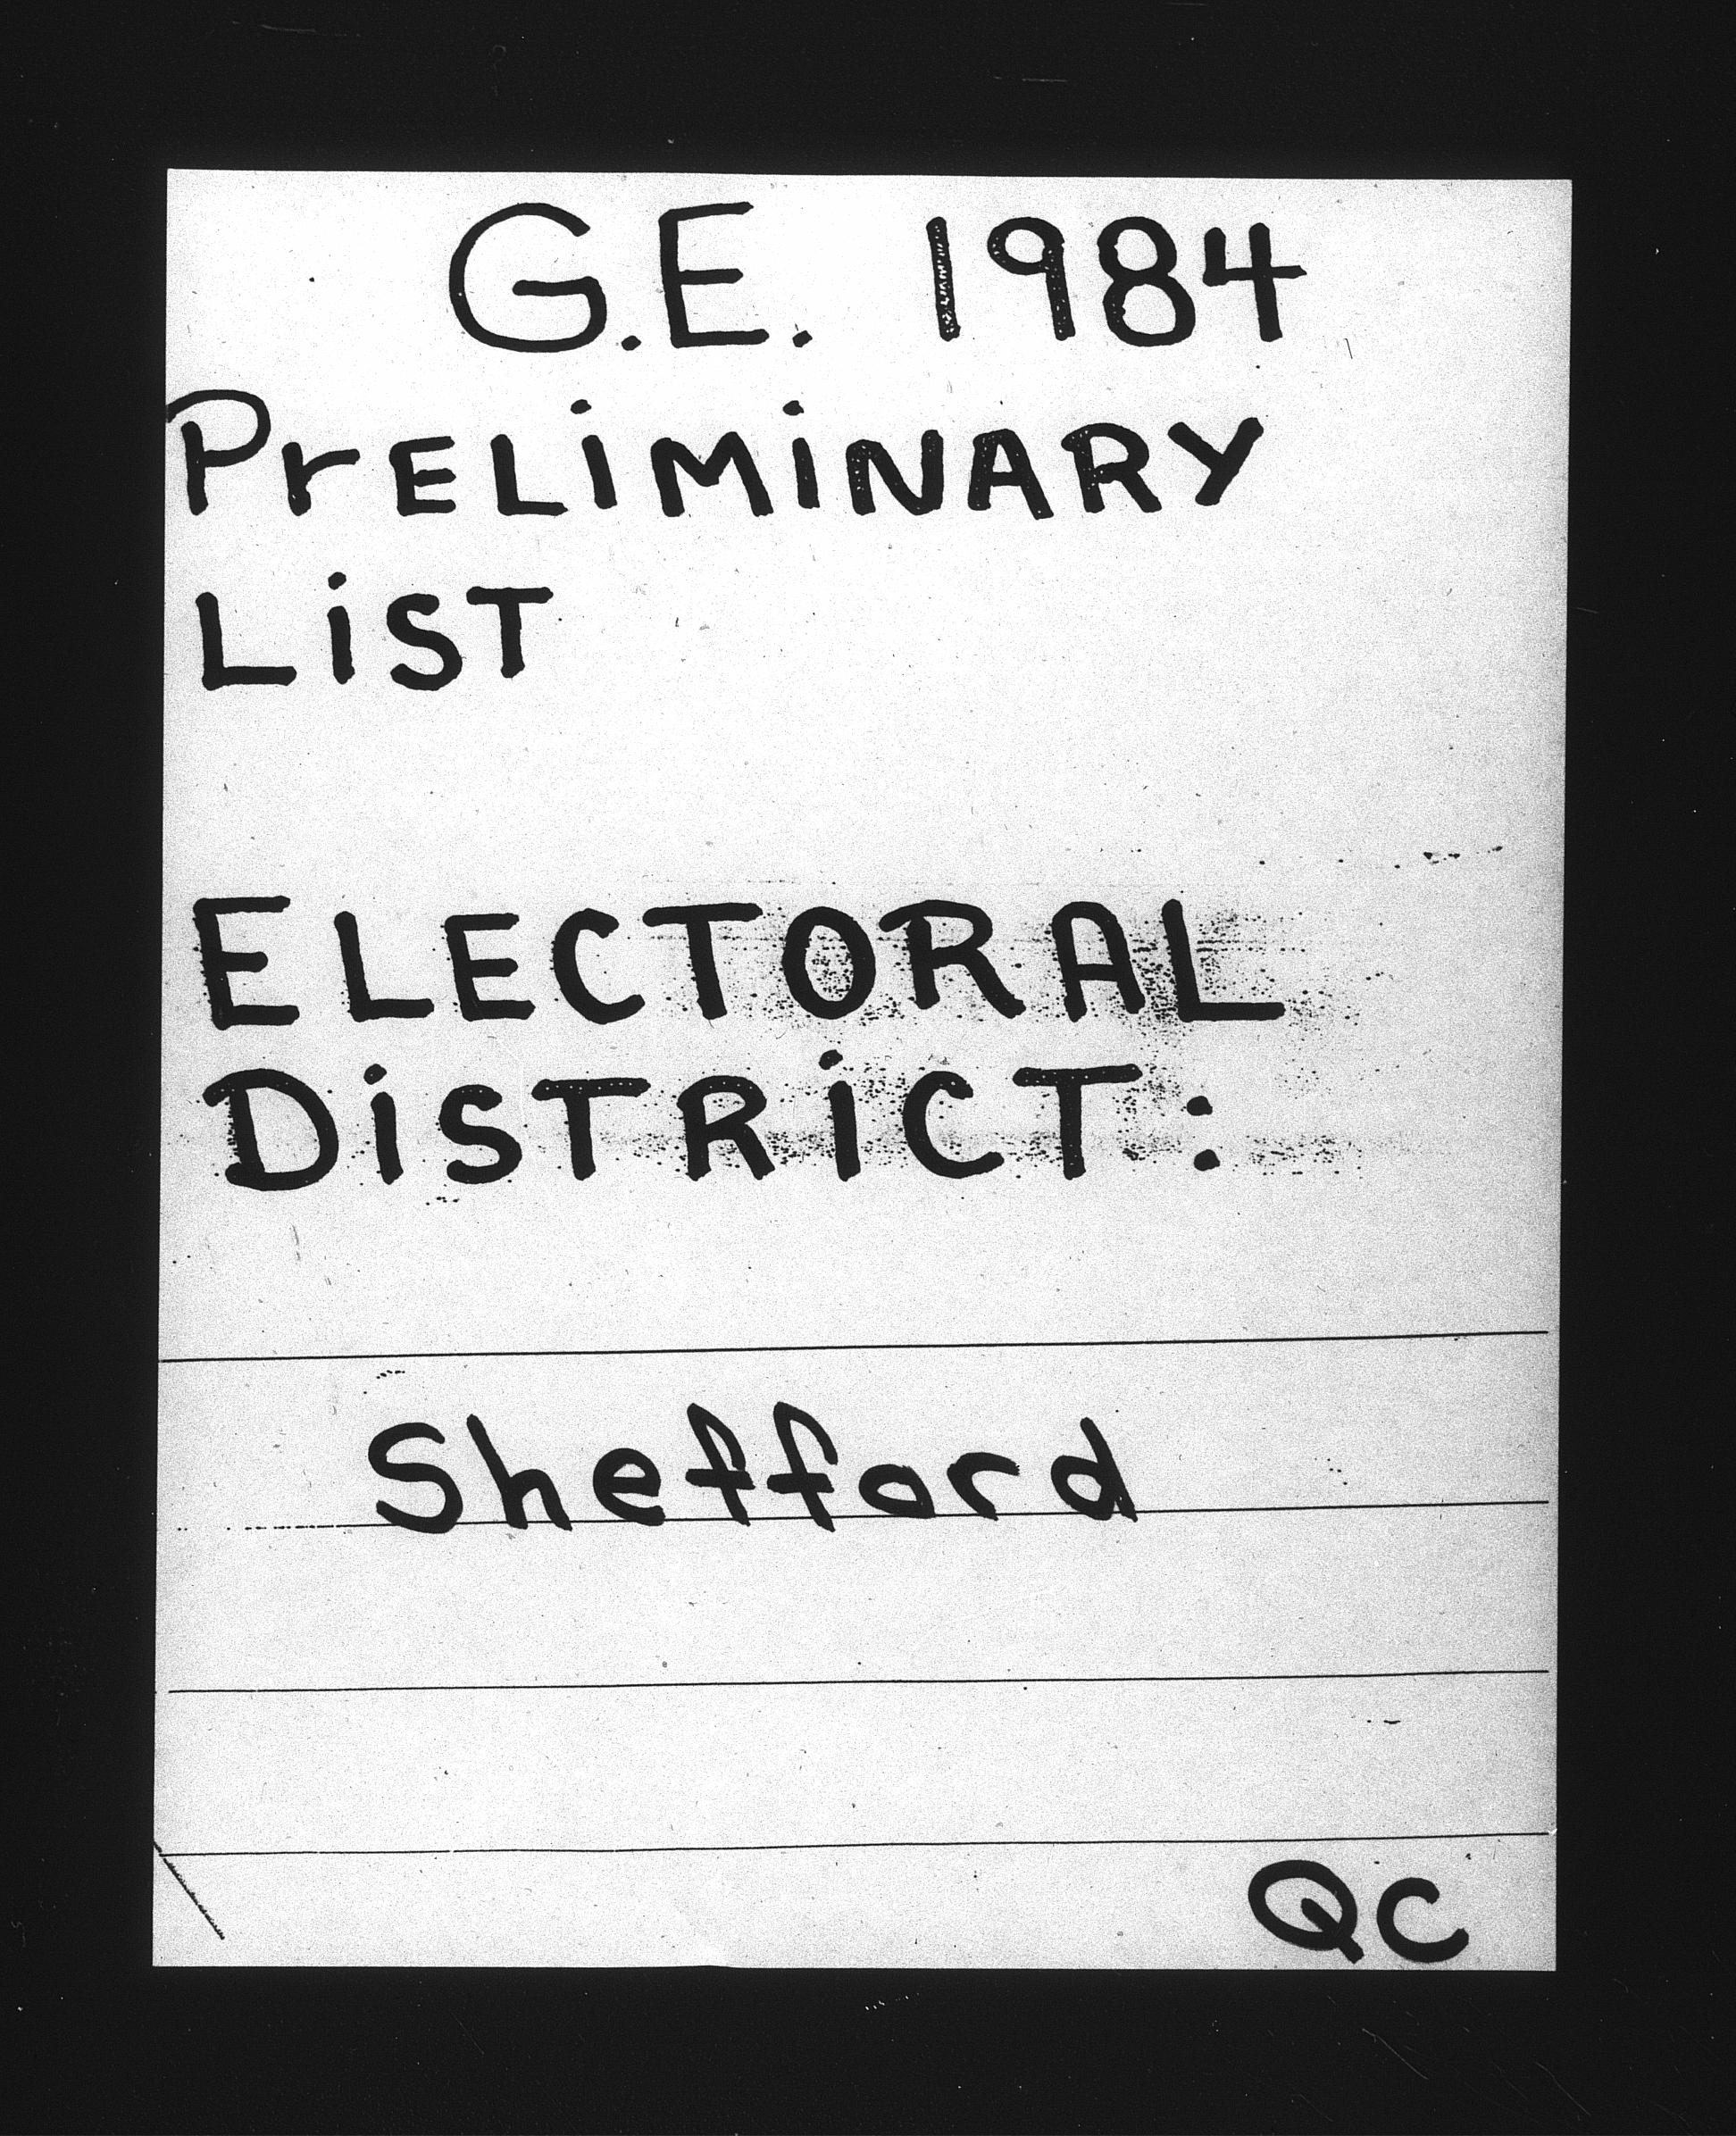 G.E. 1984
PrELiMiNARY
LiST
ELECTORAL
DiSTRiCT:
Shefford
QC